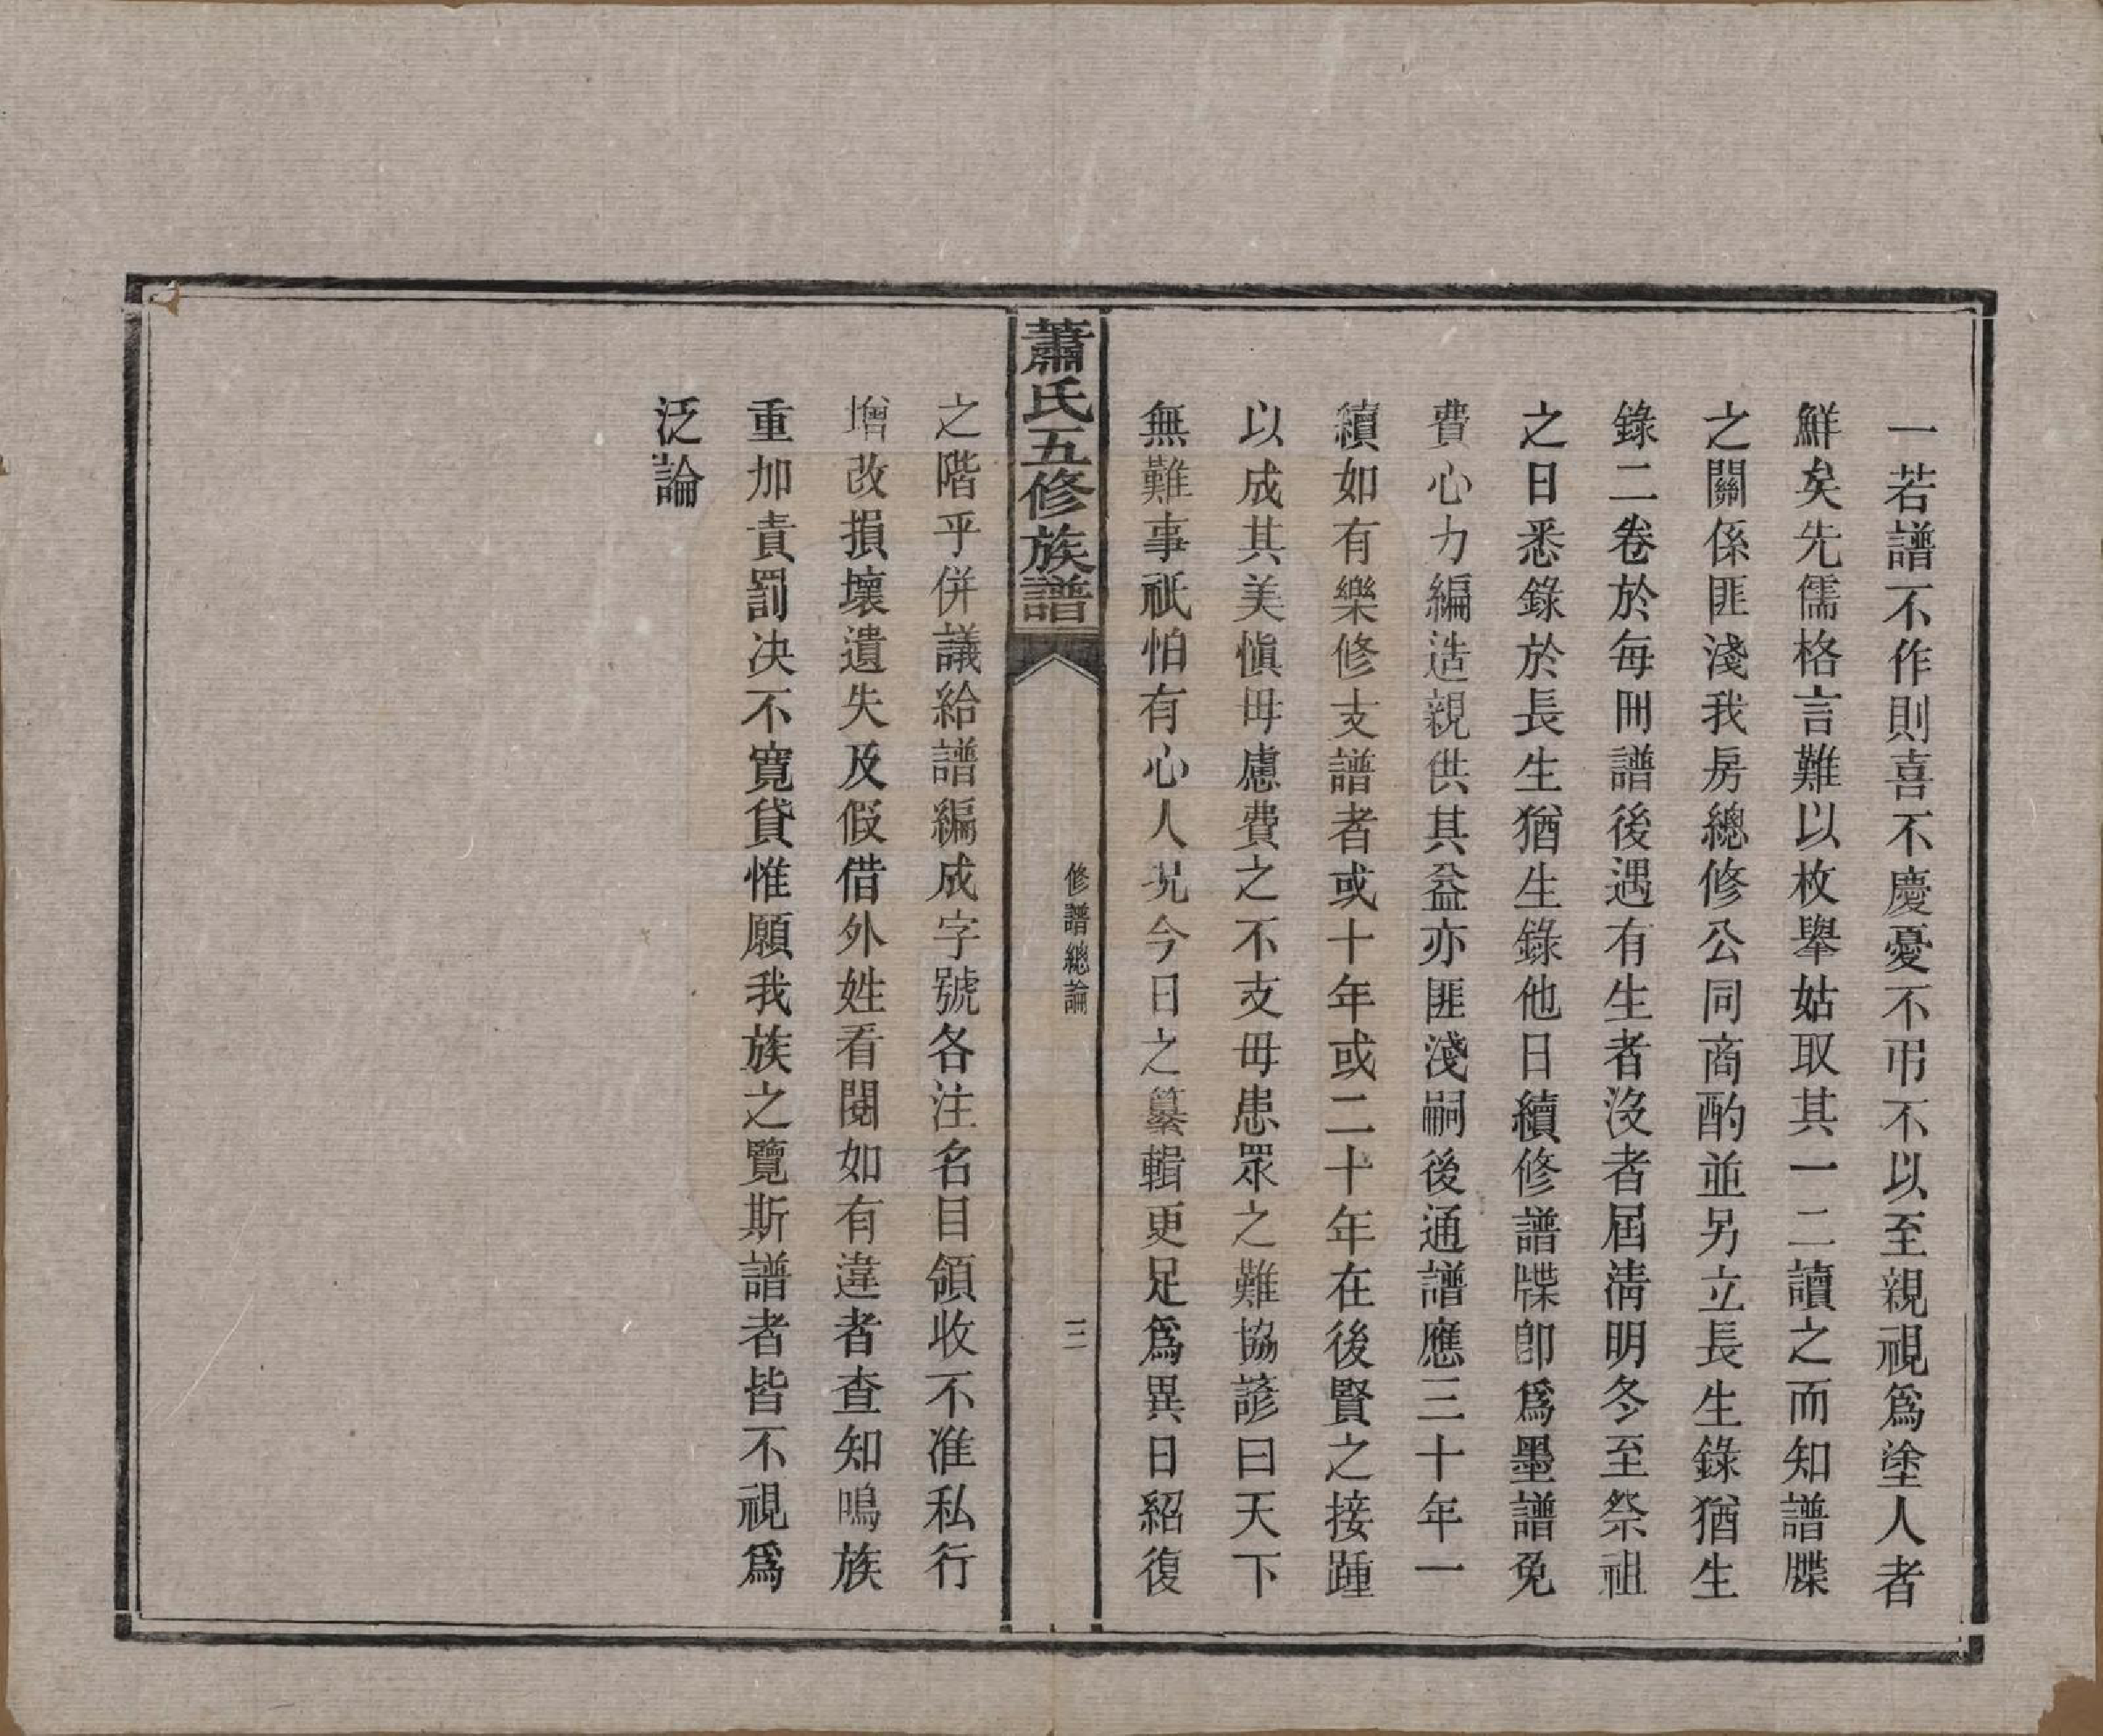 一若譜不作則喜不慶憂不弔不以至親視爲塗人者
鮮矣先儒格言難以枚舉姑取其一二讀之而知譜牒
之關係匪淺我房總修公同商酌並另立長生錄猶生
錄二卷於每冊譜後遇有生者沒者屆淸明冬至祭祖
之日悉錄於長生猶生錄他日續修譜牒卽爲墨譜免
費心力編造親供其益亦匪淺嗣後通譜應三十年一
續如有樂修支譜者或十年或二十年在後賢之接踵
以成其美愼毋慮費之不支毋患眾之難協諺曰天下
無難事祇怕有心人況今日之纂輯更足爲異日紹復
蕭氏五修族譜
修譜總論
三
之階乎併議給譜編成字號各注名目領收不准私行
增改損壞遺失及假借外姓看閱如有違者查知鳴族
重加責罰决不寬貸惟願我族之覽斯譜者皆不視爲
泛論